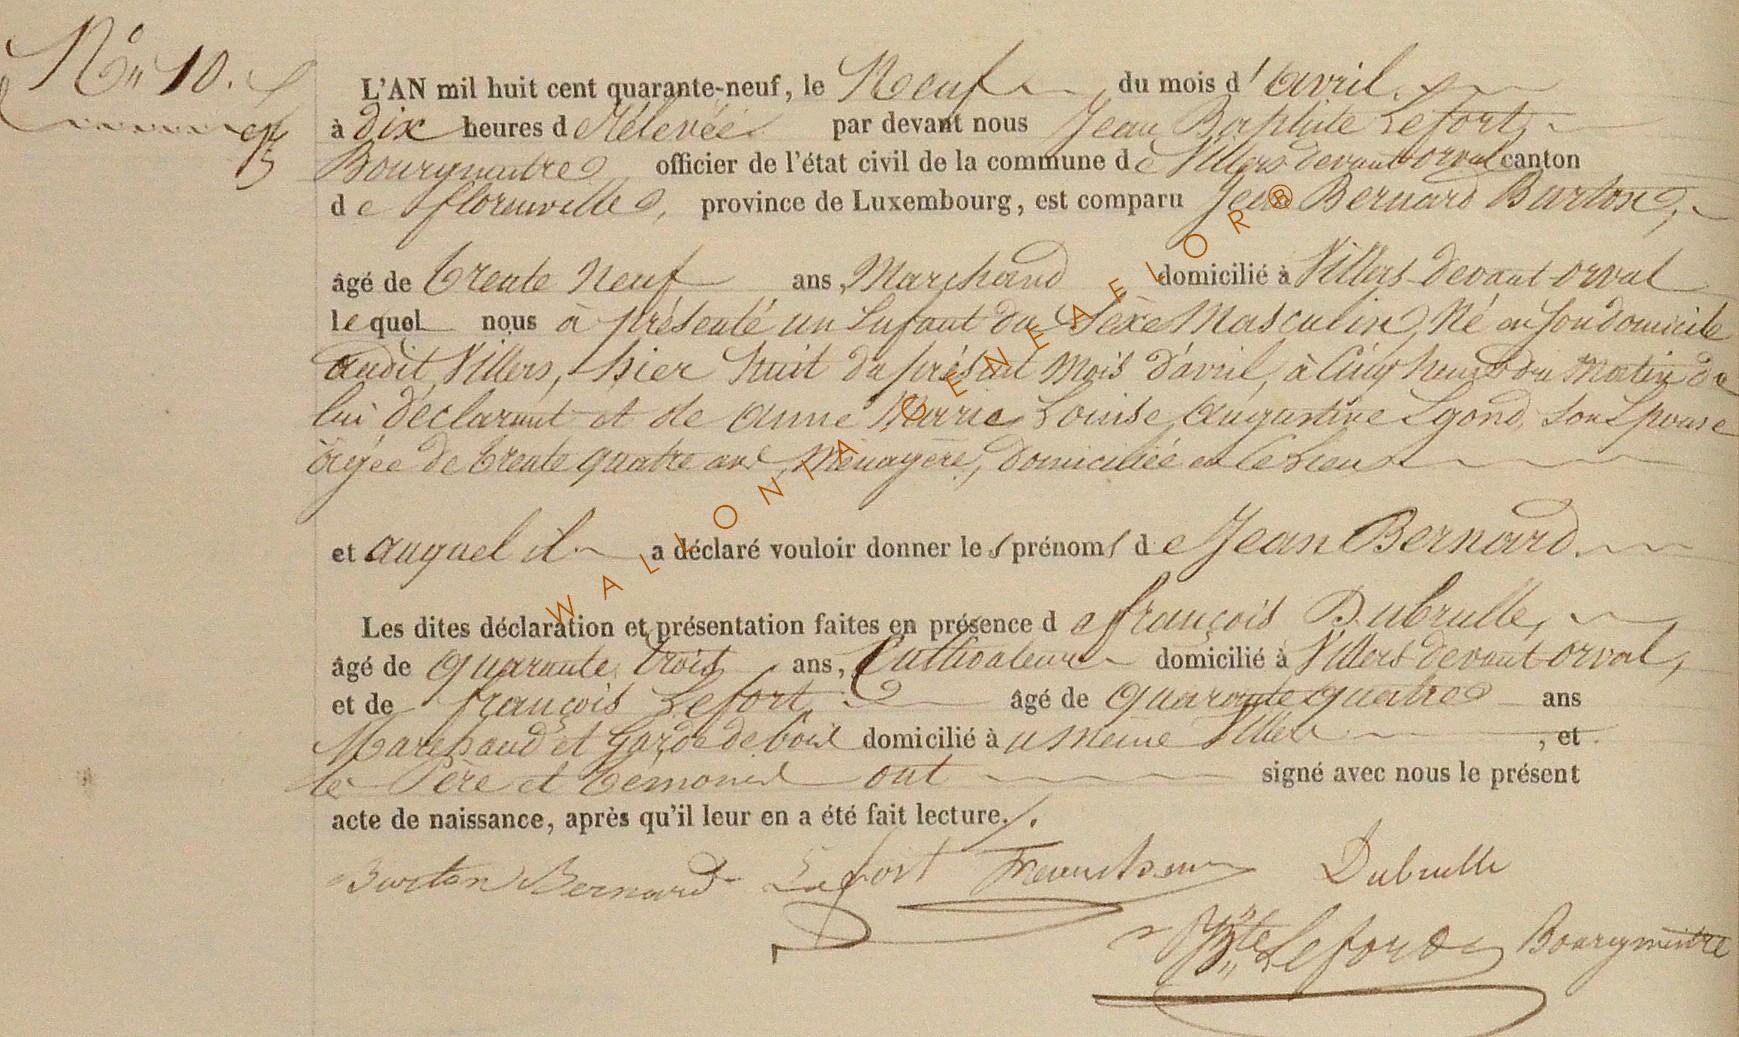 N° 10.
L'AN mil huit cent quarante-neuf, le Neuf du mois d'avril.
à dix heures d Rélevée par devant nous Jean Baptiste Lefort,
Bourgmestre officier de l'état civil de la commune de Villers devant orval canton
de florenville, province de Luxembourg, est comparu Jean Bernard Burton,
âgé de trente Neuf ans, Marchand domicilié à Villers devant orval
lequel nous à présenté un Enfant du Sèxe Masculin, Né en son domicile
audit Villers, hier huit du présent Mois d'avril, à Cinq heures du Matin de
lui déclarant et de anne Marie Louise augustine Lgond, son Epouse
âgée de trente quatre ans, Ménagère, domiciliée en ce Lieu
et auquel il a déclaré vouloir donner les prénoms de Jean Bernard.
Les dites déclaration et présentation faites en présence de françois Dubrulle,
âgé de quarante trois ans, Cultivateur domicilié à Villers devant orval,
et de françois Lefort, âgé de quarante quatre ans
Marchand et Garde de bois domicilié à u Même Villers, et
le Père et témoins ont signé avec nous le présent
acte de naissance, après qu'il leur en a été fait lecture./.
Burton Bernard Lefort Dubrulle
Bte Lefort Bourgmestre
WALLONIA GENEAFLOR®